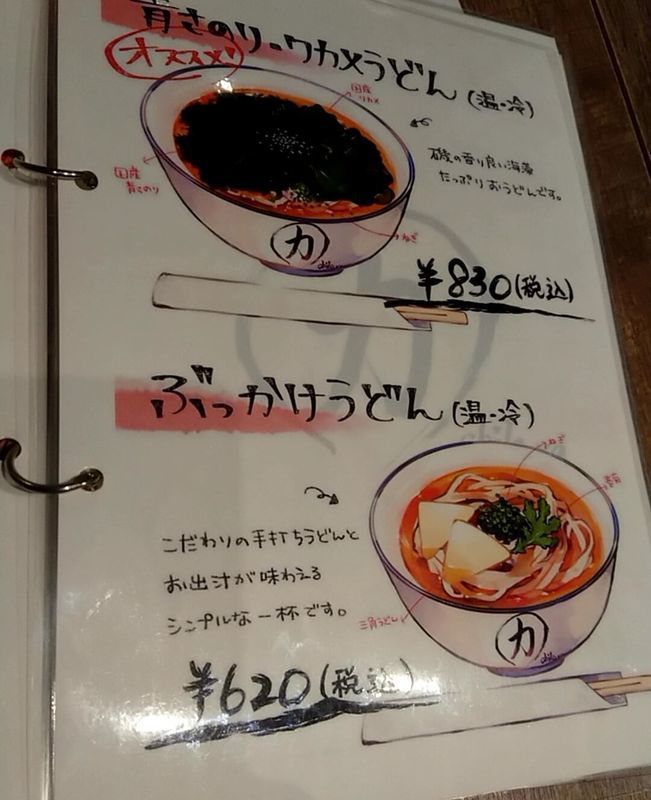 青さのり・ワカメうどん (温・冷)
オススメ!
国産
ワカメ
国産
青さのり
磯の香り良い海藻
たっぷりおうどんです。
ねぎ
力
¥830(税込)
ぶっかけうどん (温・冷)
ねぎ
こだわりの手打ちうどんと
お出汁が味わえる
シンプルな一杯です。
三角うどん
力
¥620(税込)